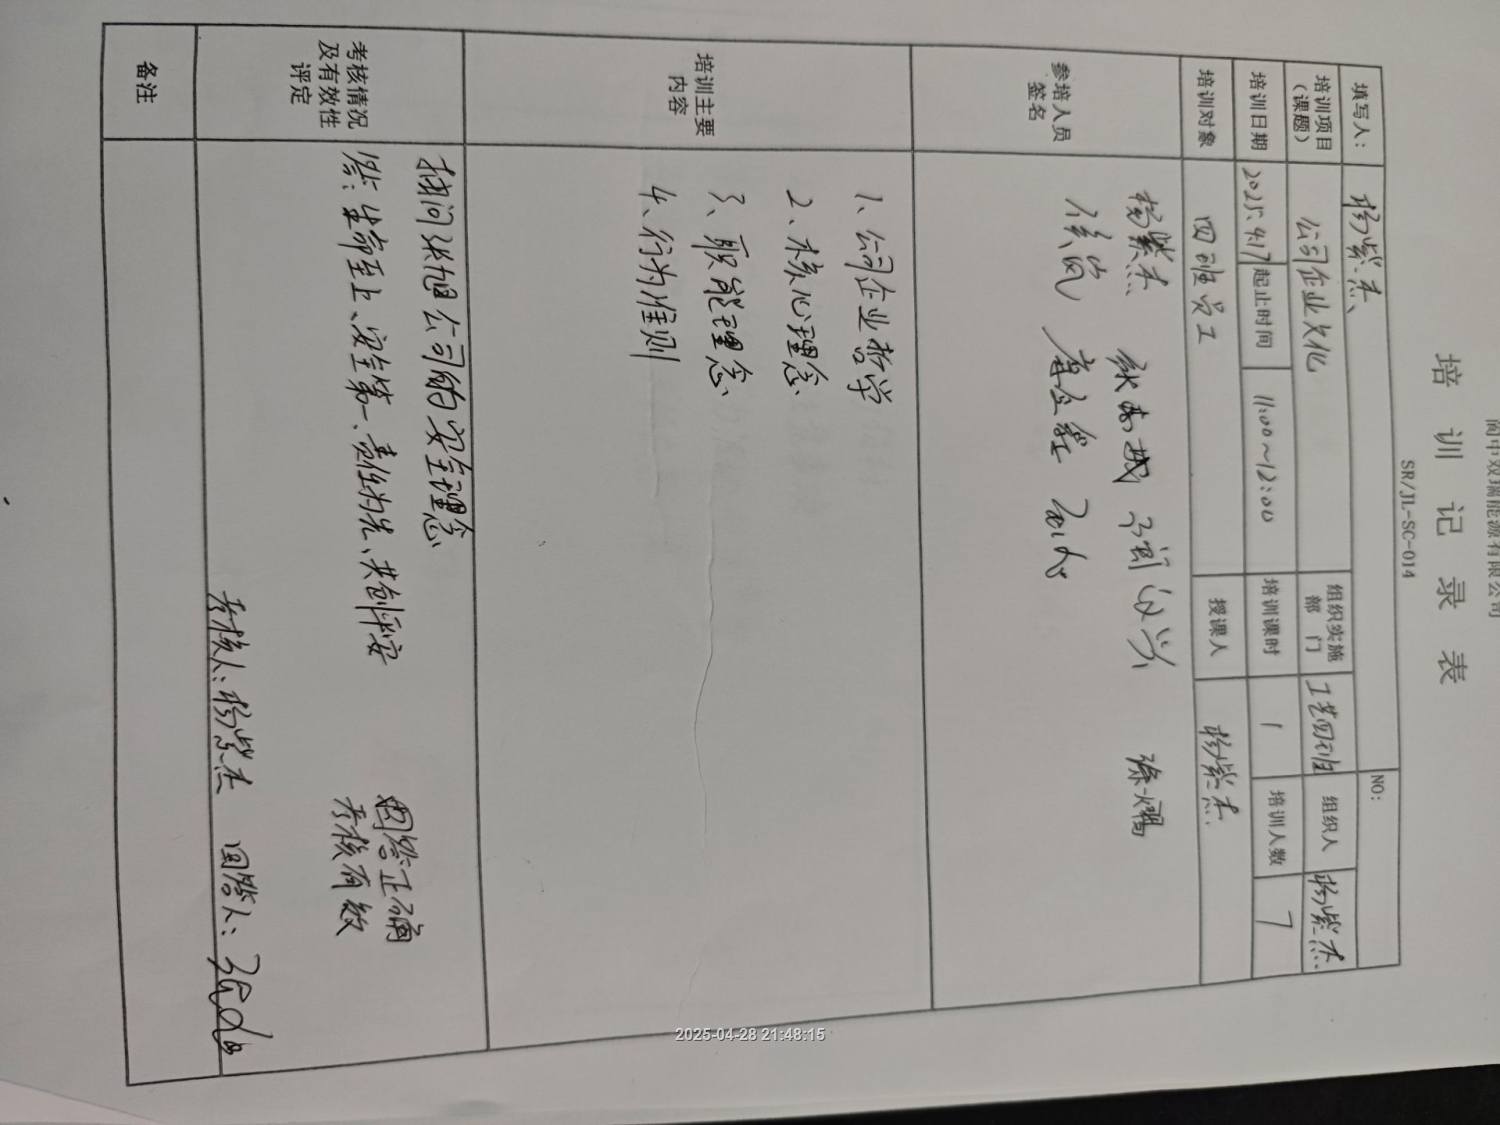 阆中双瑞能源有限公司
培训记录表
SR/JL-SC-014
NO:
填写人： 杨紫杰
培训项目（课题） 公司企业文化 组织实施部门 工艺四班 组织人 杨紫杰
培训日期 2025.4.17 起止时间 11:00～12:00 培训课时 1 培训人数 7
培训对象 四班员工 授课人 杨紫杰
参培人员签名
杨紫杰
侯岚
培训主要内容
1、公司企业哲学
2、核心理念
3、职能理念
4、行为准则
考核情况及有效性评定
抽问张旭公司的安全理念
答：生命至上、安全第一、责任为先、共创平安
回答正确
考核有效
考核人：杨紫杰 回答人：张旭
备注
2025-04-28 21:48:15